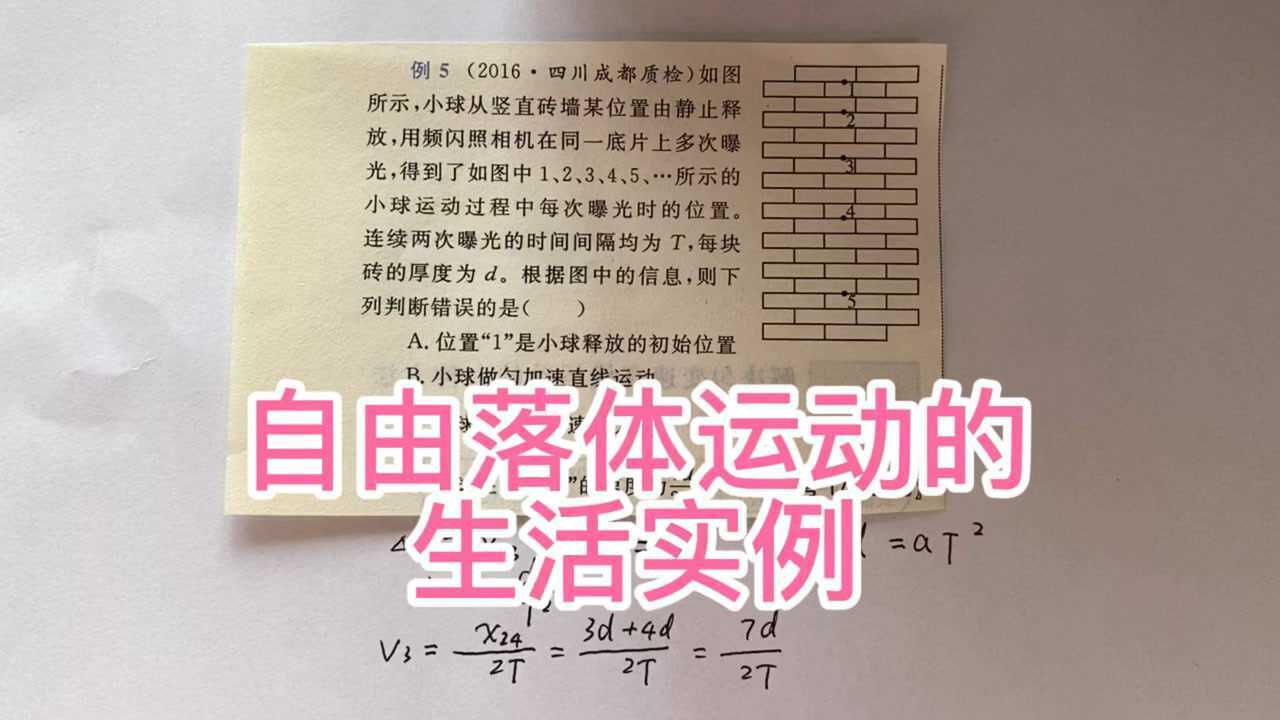 例5 (2016·四川成都质检)如图
所示,小球从竖直砖墙某位置由静止释
放,用频闪照相机在同一底片上多次曝
光,得到了如图中1、2、3、4、5、…所示的
小球运动过程中每次曝光时的位置。
连续两次曝光的时间间隔均为T,每块
砖的厚度为d。根据图中的信息,则下
列判断错误的是( )
A.位置“1”是小球释放的初始位置
B.小球做匀加速直线运动
1
2
3
4
5
自由落体运动的
生活实例
= aT²
V₃ = x₂₄/2T = 3d+4d/2T = 7d/2T